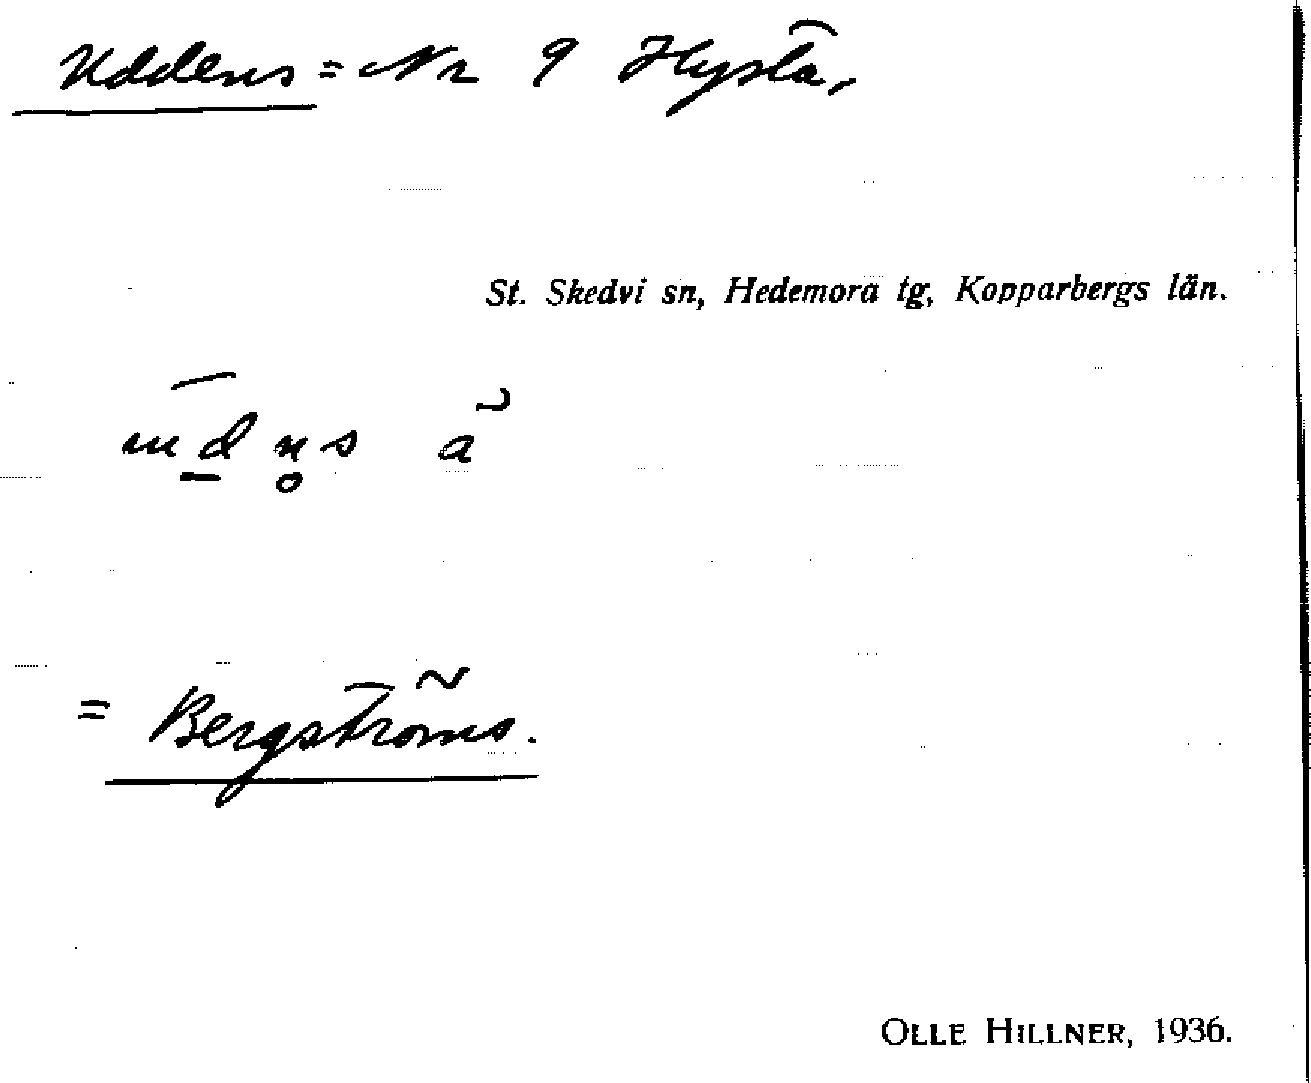 Uddens = Nr 9 Hysta,
St. Skedvi sn, Hedemora tg, Kopparbergs län.
= Bergströms.
OLLE HILLNER, 1936.